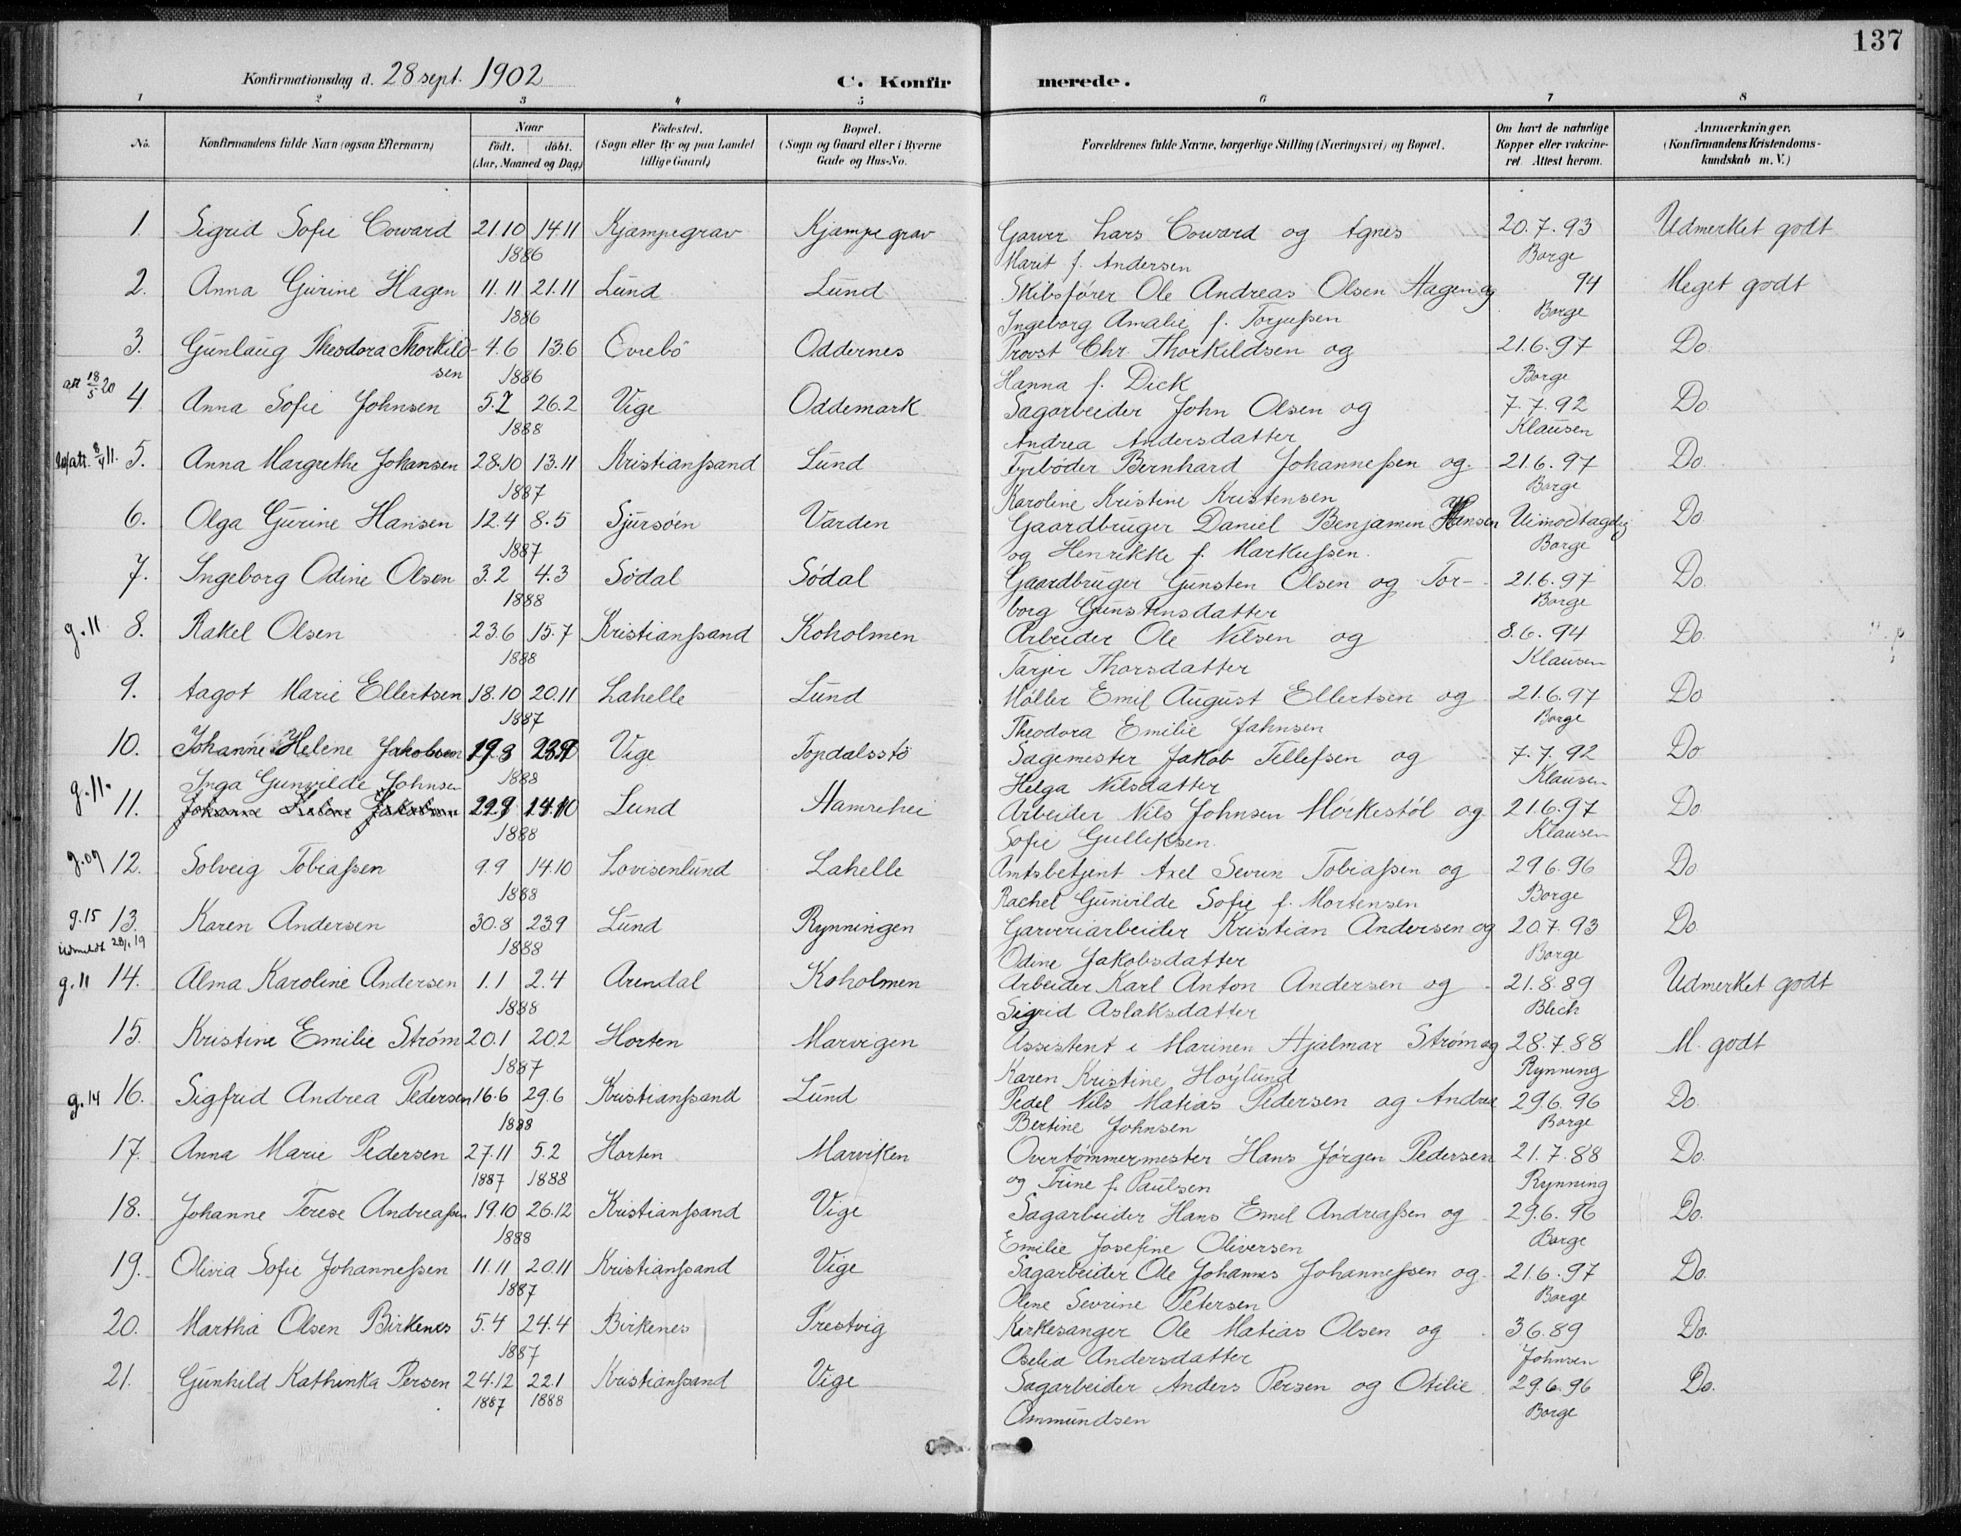 137
Konfirmationsdag d. 28 sept. 1902 C. Konfirmerede.
1 2 3 4 5 6 7 8
No. Konfirmandens fulde Navn (ogsaa Efternavn) Naar født. døbt. (Aar, Maaned og Dag) Fødested. (Sogn eller By og paa Landet tillige Gaard) Bopæl. (Sogn og Gaard eller i Byerne Gade og Hus-No. Forældrenes fulde Navne, borgerlige Stilling (Næringsvei) og Bopæl. Om havt de naturlige Kopper eller vakcineret. Attest herom. Anmærkninger. (Konfirmandens Kristendomskundskab m. V.)
1. Sigrid Sofie Coward 21.10 14.11 Kjæmpegrav Kjæmpegrav Garver Lars Coward og Agnes 20.7.93 Udmerket godt
1886 Marit f. Andersen Borge
2. Anna Gurine Hagen 11.11 21.11 Lund Lund Skibsfører Ole Andreas Olsen Hagen og 94 Meget godt
1886 Ingeborg Amalie f. Torjussen Borge
3. Gunlaug Theodora Thorkild- 4.6 13.6 Øvrebö Oddernes Provst Chr Thorkildsen og 21.6.97 Do
sen 1886 Hanna f. Dick Borge
att 18/5 20 4. Anna Sofie Johnsen 5.2 26.2 Vige Oddemark Sagarbeider John Olsen og 7.7.92 Do
1888 Andrea Andersdatter Klausen
8/4 11. 5. Anna Margrethe Johansen 28.10 13.11 Kristianssand Lund Fyrbøder Bernhard Johannessen og 21.6.97 Do
1887 Karoline Kristine Kristensen Borge
6. Olga Gurine Hansen 12.4 8.5 Sjursöen Varden Gaardbruger Daniel Benjamin Hansen Uimodtagelig Do
1887 og Henrikke f. Markussen. Borge
7. Ingeborg Odine Olsen 3.2 4.3 Södal Södal Gaardbruger Gunsten Olsen og Tor- 21.6.97 Do.
1888 borg Gunstensdatter Borge
g.11 8. Rakel Olsen 23.6 15.7 Kristianssand Koholmen Arbeider Ole Nilsen og 8.6.94 Do.
1888 Tarjer Thorsdatter Klausen
9. Aagot Marie Ellertsen 18.10 20.11 Lahelle Lund Møller Emil August Ellertsen og 21.6.97 Do
1887 Theodora Emilie Jahnsen Borge
10. Johanne Helene Jakobsen 19.8 23.9 Vige Topdalsstö Sagemester Jakob Tellefsen og 7.7.92 Do
1888 Helga Nilsdatter Klausen
Inga Gunvilde Johnsen
g.11. 11. Johanne Helene Jakobsen 22.9 14.10 Lund Hamrehei Arbeider Nils Johnsen Mörkestöl og 21.6.97 Do
1888 Sofie Gulliksen. Klausen
g.09 12. Solveig Tobiassen 9.9 14.10 Lovisenlund Lahelle Amtsbetjent Axel Severin Tobiassen og 29.6.96 Do
1888 Rachel Gunvilde Sofie f. Mortensen Borge
g.15 13. Karen Andersen 30.8 23.9 Lund Rynningen Garveriarbeider Kristian Andersen og 20.7.93 Do
utmeldt 28/1 19 1888 Odine Jakobsdatter Borge
g.11 14. Alma Karoline Andersen 1.1 2.4 Arendal Koholmen Arbeider Karl Anton Andersen og 21.8.89 Udmerket godt
1888 Sigrid Aslaksdatter Blich
15. Kristine Emilie Strøm 20.1 20.2 Horten Marvigen Assistent i Marinen Hjalmar Strøm og 28.7.88 M. godt
1887 Karen Kristine Höylund Rynning
g.14 16. Sigfrid Andrea Pedersen 16.6 29.6 Kristianssand Lund Pedel Nils Matias Pedersen og Andrea 29.6.96 Do.
1888 Bertine Johnsen Borge
17. Anna Marie Pedersen 27.11 5.2 Horten Marviken Overtømmermester Hans Jørgen Pedersen 21.7.88 Do.
1887 1888 og Trine f. Paulsen Rynning
18. Johanne Terese Andreassen 19.10 26.12 Kristianssand Vige Sagarbeider Hans Emil Andreassen og 29.6.96 Do.
1888 Emilie Josefine Oliversen Borge
19. Olivia Sofie Johannessen 11.11 20.11 Kristianssand Vige Sagarbeider Ole Johannes Johannessen og 21.6.97 Do.
1887 Oline Sevrine Petersen Borge
20. Martha Olsen Birkenes 5.4 24.4 Birkenes Prestvig Kirkesanger Ole Matias Olsen og 3.6.89 Do.
1887 Oselia Andersdatter Johnsen
21. Gunhild Kathinka Persen 24.12 22.1 Kristianssand Vige Sagarbeider Anders Persen og Otilie 29.6.96 Do.
1887 1888 Ommundsen Borge